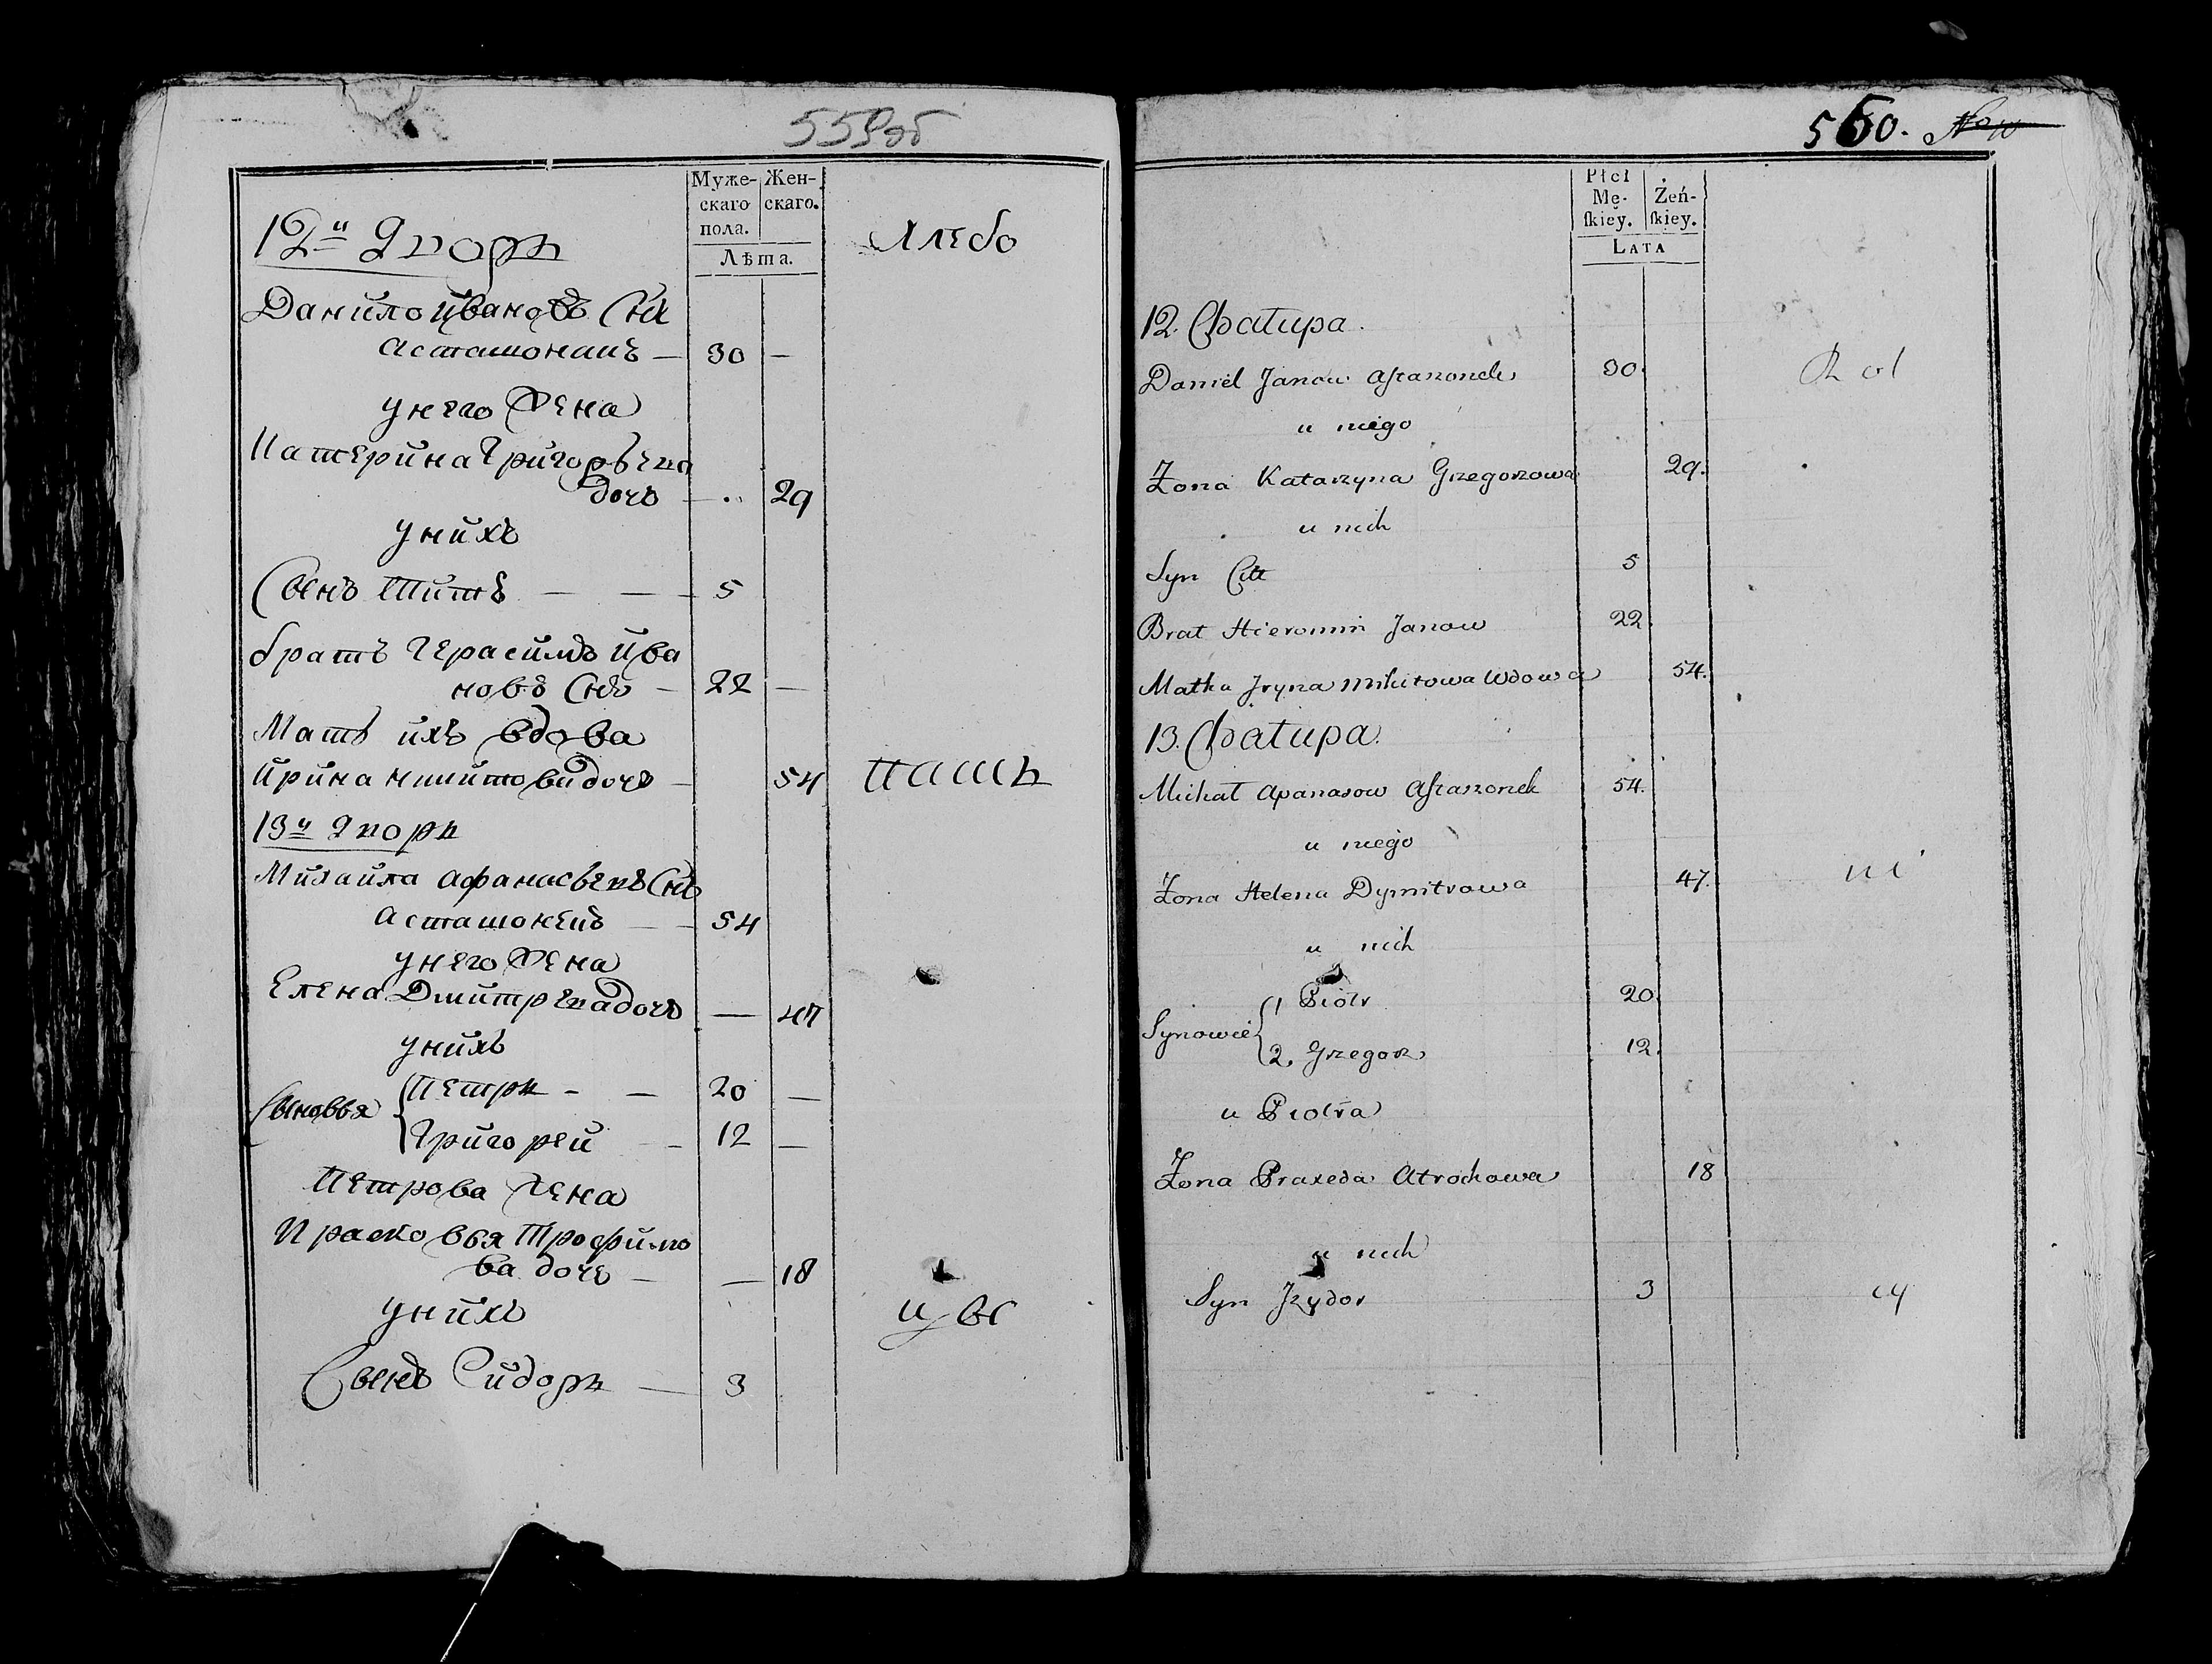 559об
Муже- Жен-
скаго скаго.
пола.
Лѣта.
12й Дворъ
Хлебо
Данило Ивановъ Снъ
Асташонакъ — 30 —
у него Жена
Катерина Григорьева
дочь — 29
у нихъ
Сынъ Титъ — — 5
братъ Герасимъ Ива
новъ Снъ — 22 —
Мать ихъ вдова
Ирина Никитова дочь — 54
пашь
13й Дворъ
Михайла Афанасьевъ Снъ
Асташонекъ — 54
у него Жена
Елена Дмитрева дочь — 47
у нихъ
Сыновья Петръ — — 20 —
Григорей — 12 —
Петрова Жена
Прасковья Трофимо
ва дочь — — 18
у нихъ
Сынъ Сидоръ — 3
560.
Płci
Mę- Żeń-
ſkiey. ſkiey.
LATA
12. Chatupa.
Daniel Janow Astaszonek 30.
Rol
u niego
Żona Katarzyna Grzegorzowa 29.
u nich
Syn Cit 5
Brat Hieronim Janow 22.
Matka Jryna Mikitowa Wdowa 54.
13. Chatupa.
Michał Apanasow Astaszonek 54.
u niego
Żona Helena Dymitrowa 47.
ni
u nich
Synowie 1 Piotr 20.
2. Grzegorz 12.
u Piotra
Żona Praxeda Atrochowa 18
u nich
Syn Jzydor 3
cy